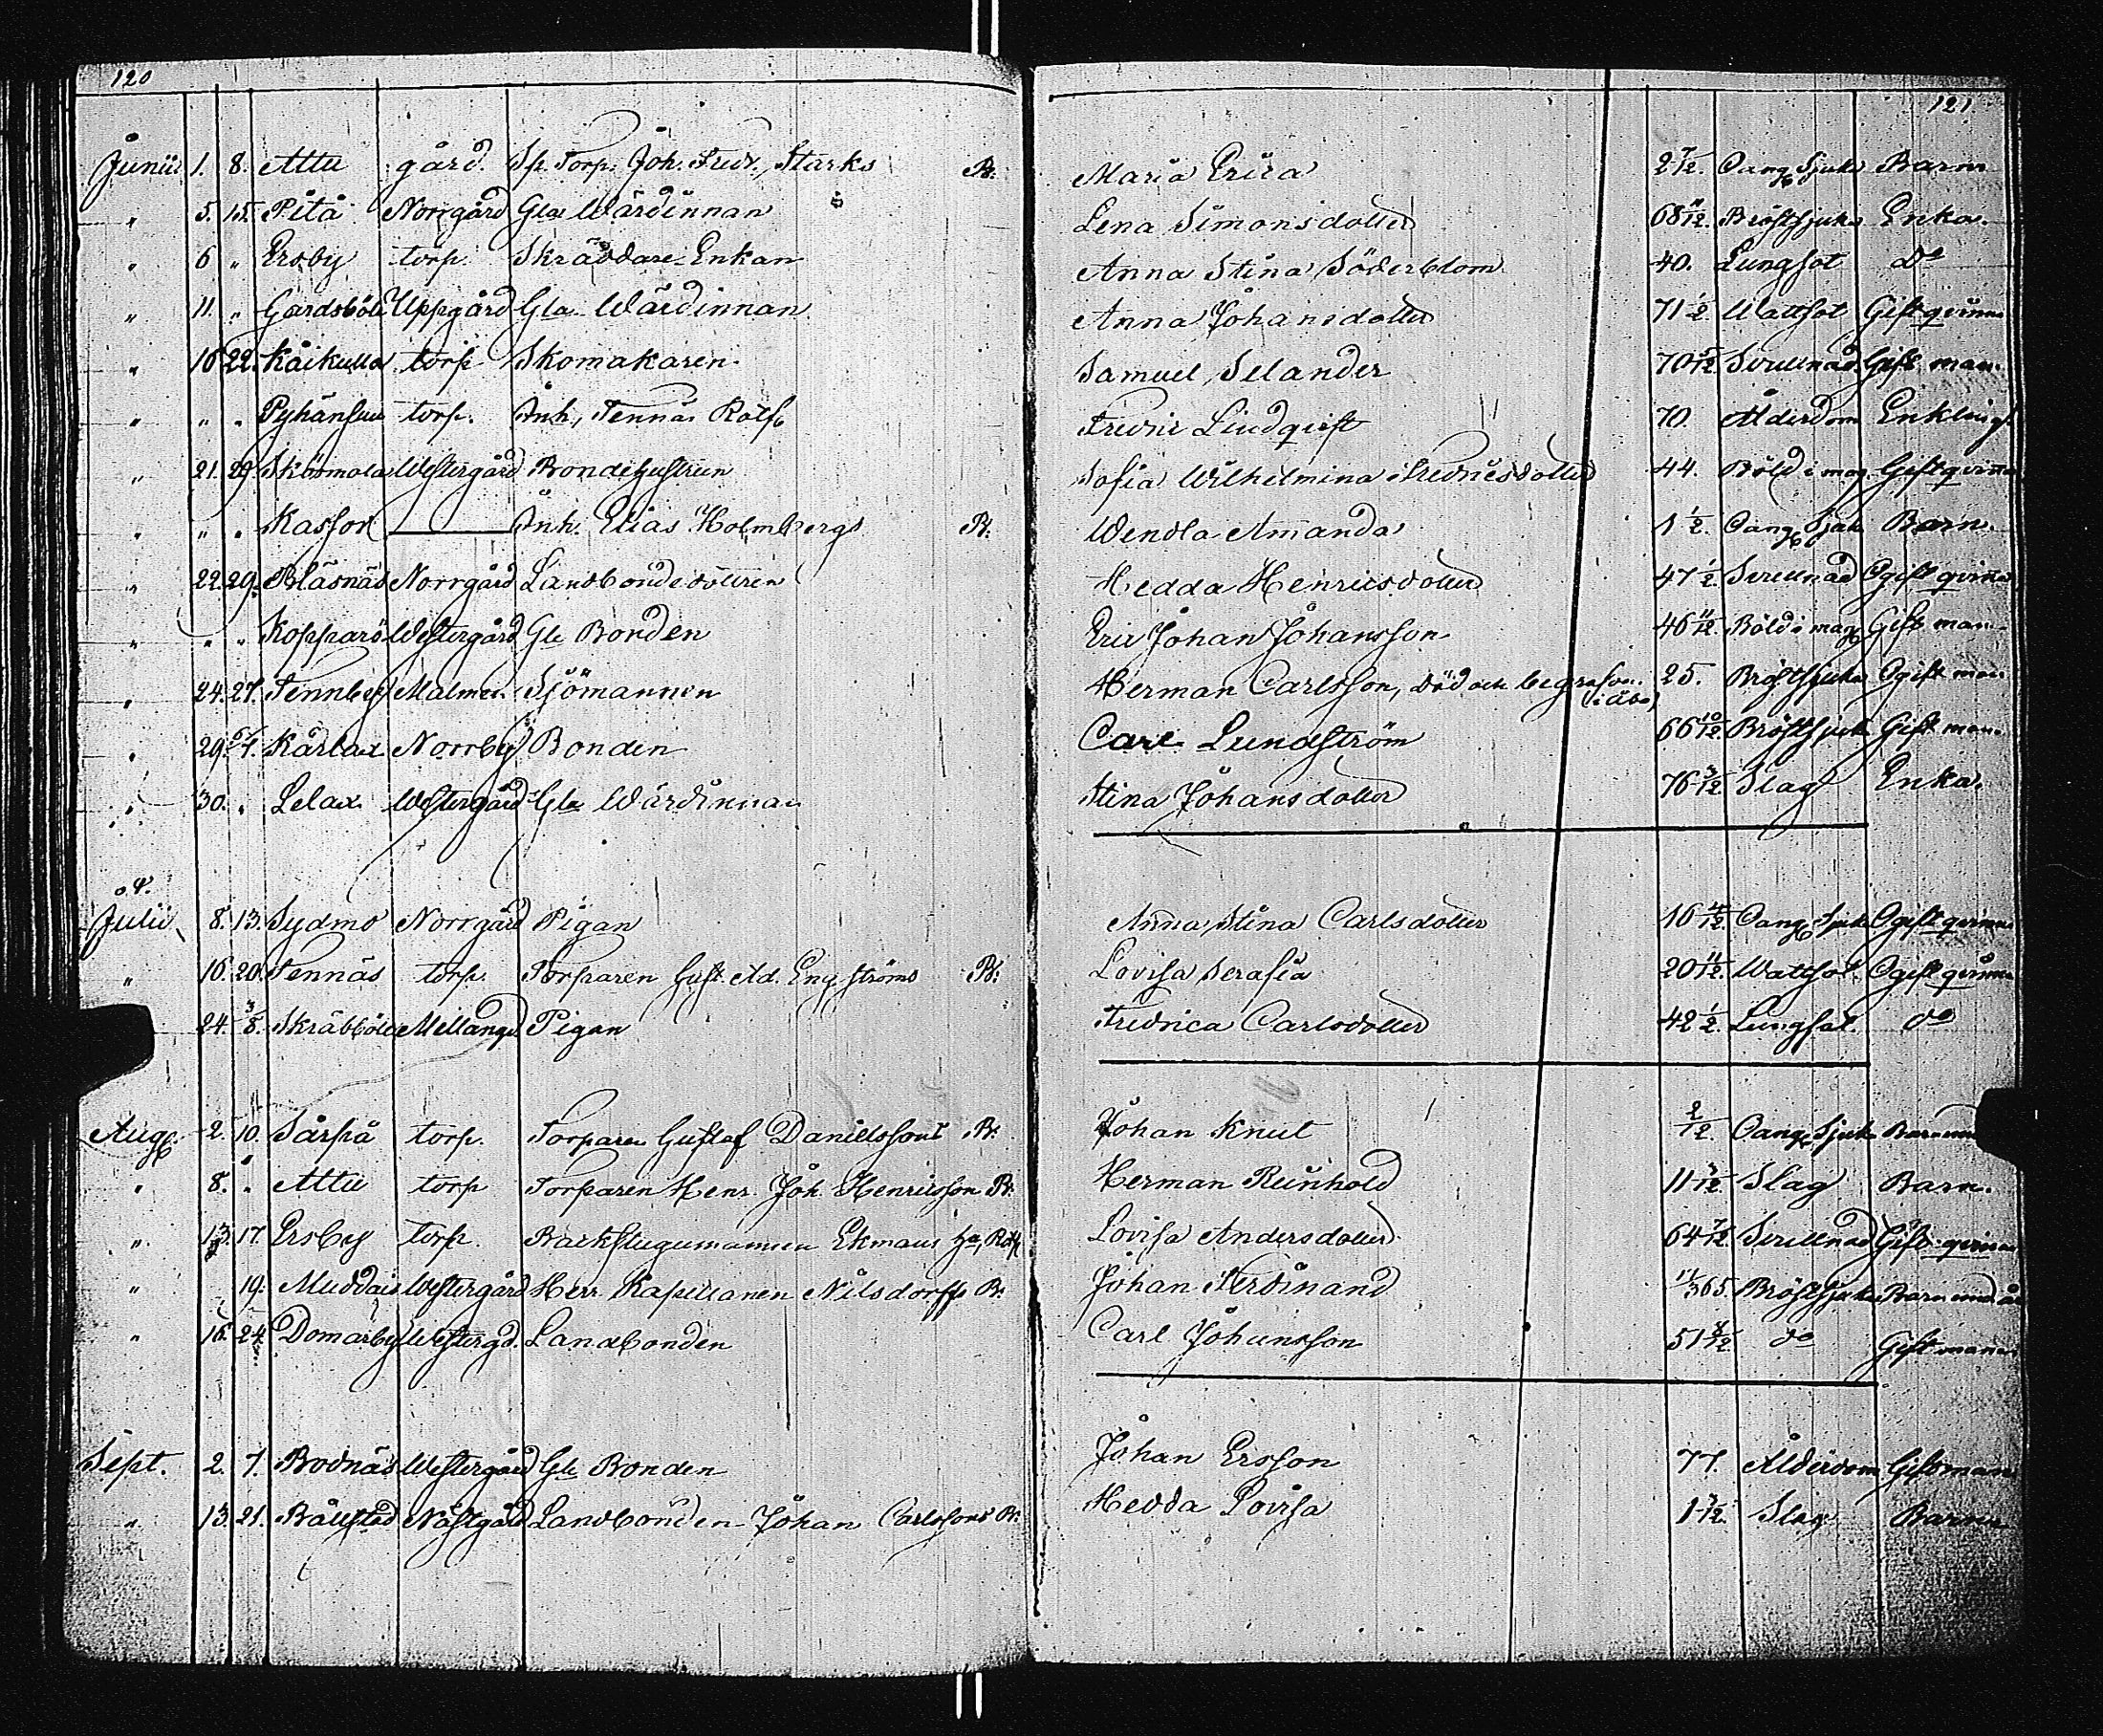 120
121
Junii 1. 8. Attu gård. Sp. Torp. Joh. Fredr. Starks B: Maria Erica 2 7/12. Oang. Sjukd Barn
" 5. 15. Pitå Norrgård Gla Wärdinnan Lena Simonsdotter 68 11/12. Bröstsjuka Enka.
" 6 " Ersby torp. Skräddare-Enkan Anna Stina Söderblom 40. Lungsot do
" 11. " Gardsböle Uppgård Gla Wärdinnan Anna Johansdotter 71 1/2 Wattsot Gift qvinna
" 16 22. Kaikulla torp Skomakaren Samuel Selander 70 5/12 Svullnad Gift man.
" " " torp. Inh. Tennäs Rolfs Lindqvist 70. Ålderdom Enkling.
" 21. 29. Skösmola Westergård Bondehustrun Sofia Wilhelmina Fredricsdotter 44. Böld i mag. Gift qvinna
" " " Kassor Inh. Elias Holmbergs B: Wendla Amanda 1 1/2. Oang. Sjuk Barn.
" 22. 29. Bläsnäs Norrgård Landbondedottren Hedda Henricsdotter 47 1/2. Svullnad Ogift qvinna
" " " Kopparö Westergård Gle Bonden Eric Johan Johansson 46 11/12. Böld i mag. Gift man
" 24. 27. Tennby Malmen Sjömannen Herman Carlsson, död och begrafven i Åbo) 25. Bröstsjuka Ogift man
" 29. 5/7. Kärlax Norrby Bonden Carl Lundström 66 10/12 Bröstsjuk Gift man.
" 30. " Lelax Westergård Gla Wärdinnan Stina Johansdotter 76 3/12 Slag Enka.
Julii 8. 13. Sydmo Norrgård Pigan Anna Stina Carlsdotter 16 4/12. Oang. Sjuk Ogift qvinna
" 16. 20. Tennäs torp. Torparen Gust. Ad. Engströms B: Lovisa Serafia 20 11/12. Wattsot. Ogift qvinna
24. 3/8. Skräbböle Mellangd Pigan Fredrica Carlsdotter 42 1/2. Lungsot. do
Aug. 2. 10. Särpä torp. Torparen Gustaf Danielssons B: Johan Knut 2/12. Oang. Sjuk Barn
" 8. " Attu torp Torparen Henr. Joh. Henricsson B: Herman Reinhold 11 3/12 Slag Barn.
" 13. 17. Ersby torp. Backstugumannen Ekmans Lovisa Andersdotter 64 7/12. Svullnad Gift qvinna
" " 19. Muddais Westergård Herr Kapellanen Nilsdorffs B: Johan Ferdinand 11/365. Bröstsjuka Barn und. år
" 16. 24. Domarby Westergd. Landbonden Carl Johansson 51 8/12 do Gift man
Sept. 2. 7. Bodnäs Westergård Gle Bonden Johan Ersson 77. Ålderdom Gift man
" 13. 21. Westergård Landbonden Johan Carlssons B: Hedda Lovisa 1 3/12. Slag Barn